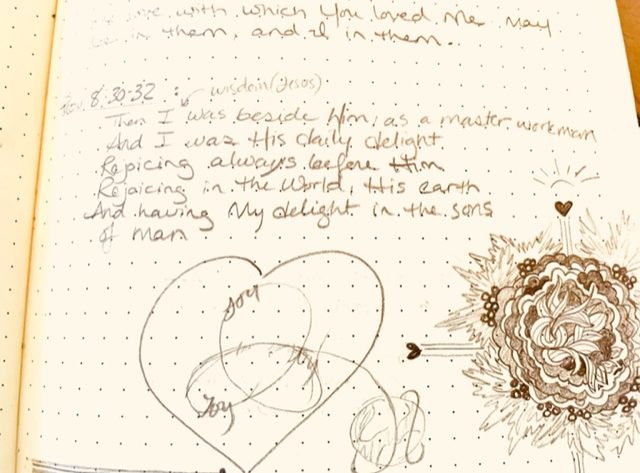 love with which You loved Me may
be in them, and I in them.
Prov. 8:30-32 : wisdom (Jesus)
Then I was beside Him, as a master workman
And I was His daily delight
Rejoicing always before Him
Rejoicing in the World, His earth
And having My delight in the sons
of man
Joy
Joy
Joy